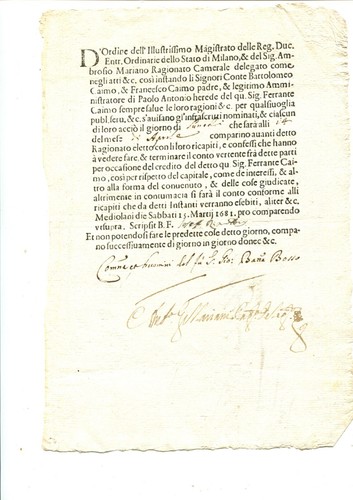 D'Ordine dell'Illustrissimo Magistrato delle Reg. Duc.
Entr. Ordinarie dello Stato di Milano, & del Sig. Am-
brosio Mariano Ragionato Camerale delegato come
negli atti &c. così instando li Signori Conte Bartolomeo
Caimo, & Francesco Caimo padre, & legitimo Ammi-
nistratore di Paolo Antonio herede del qu. Sig. Ferrante
Caimo sempre salue le loro ragioni &c. per qualsiuoglia
publ. feru, &c. s'auisano gl'infrascritti nominati, & ciascun
di loro acciò il giorno di che sarà alli 14
del mese di Aprile comparino auanti detto
Ragionato eletto con li loro ricapiti, e confessi che hanno
à vedere fare, & terminare il conto vertente frà dette parti
per occasione del credito del detto qu. Sig. Ferrante Cai-
mo, così per rispetto del capitale, come de interessi, & al-
tro alla forma del conuenuto, & delle cose giudicate,
altrimente in contumacia si farà il conto conforme alli
ricapiti che da detti Instanti verranno esebiti, aliter &c.
Mediolani die Sabbati 15. Martij 1681. pro comparendo
vt supra. Scripsit B. F.
Et non potendosi fare le predette cose detto giorno, compa-
no successiuamente di giorno in giorno donec &c.
Comune et huomini del Bosso